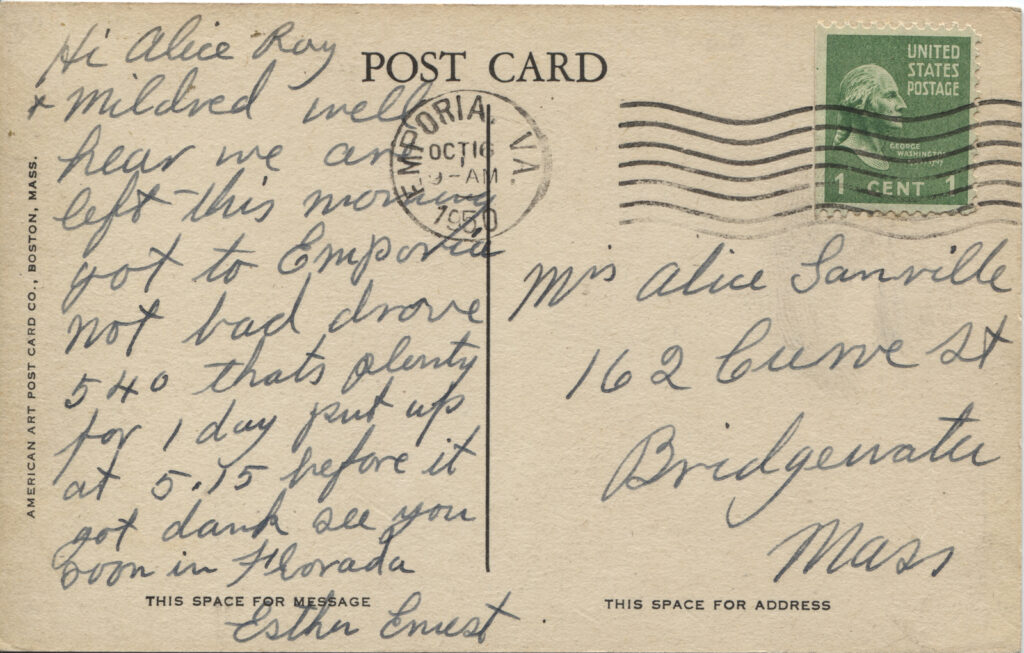 POST CARD
Hi Alice Ray
+ Mildred well
hear we are
left this morning
got to Emporia
not bad drove
540 thats plenty
for 1 day put up
at 5.15 before it
got dark see you
soon in Florada
Esther Ernest
THIS SPACE FOR MESSAGE
AMERICAN ART POST CARD CO., BOSTON, MASS.
EMPORIA, VA.
OCT 16
9-AM
1950
UNITED
STATES
POSTAGE
GEORGE
WASHINGTON
1 CENT 1
Mrs Alice Sanville
162 Curve St
Bridgewater
Mass
THIS SPACE FOR ADDRESS